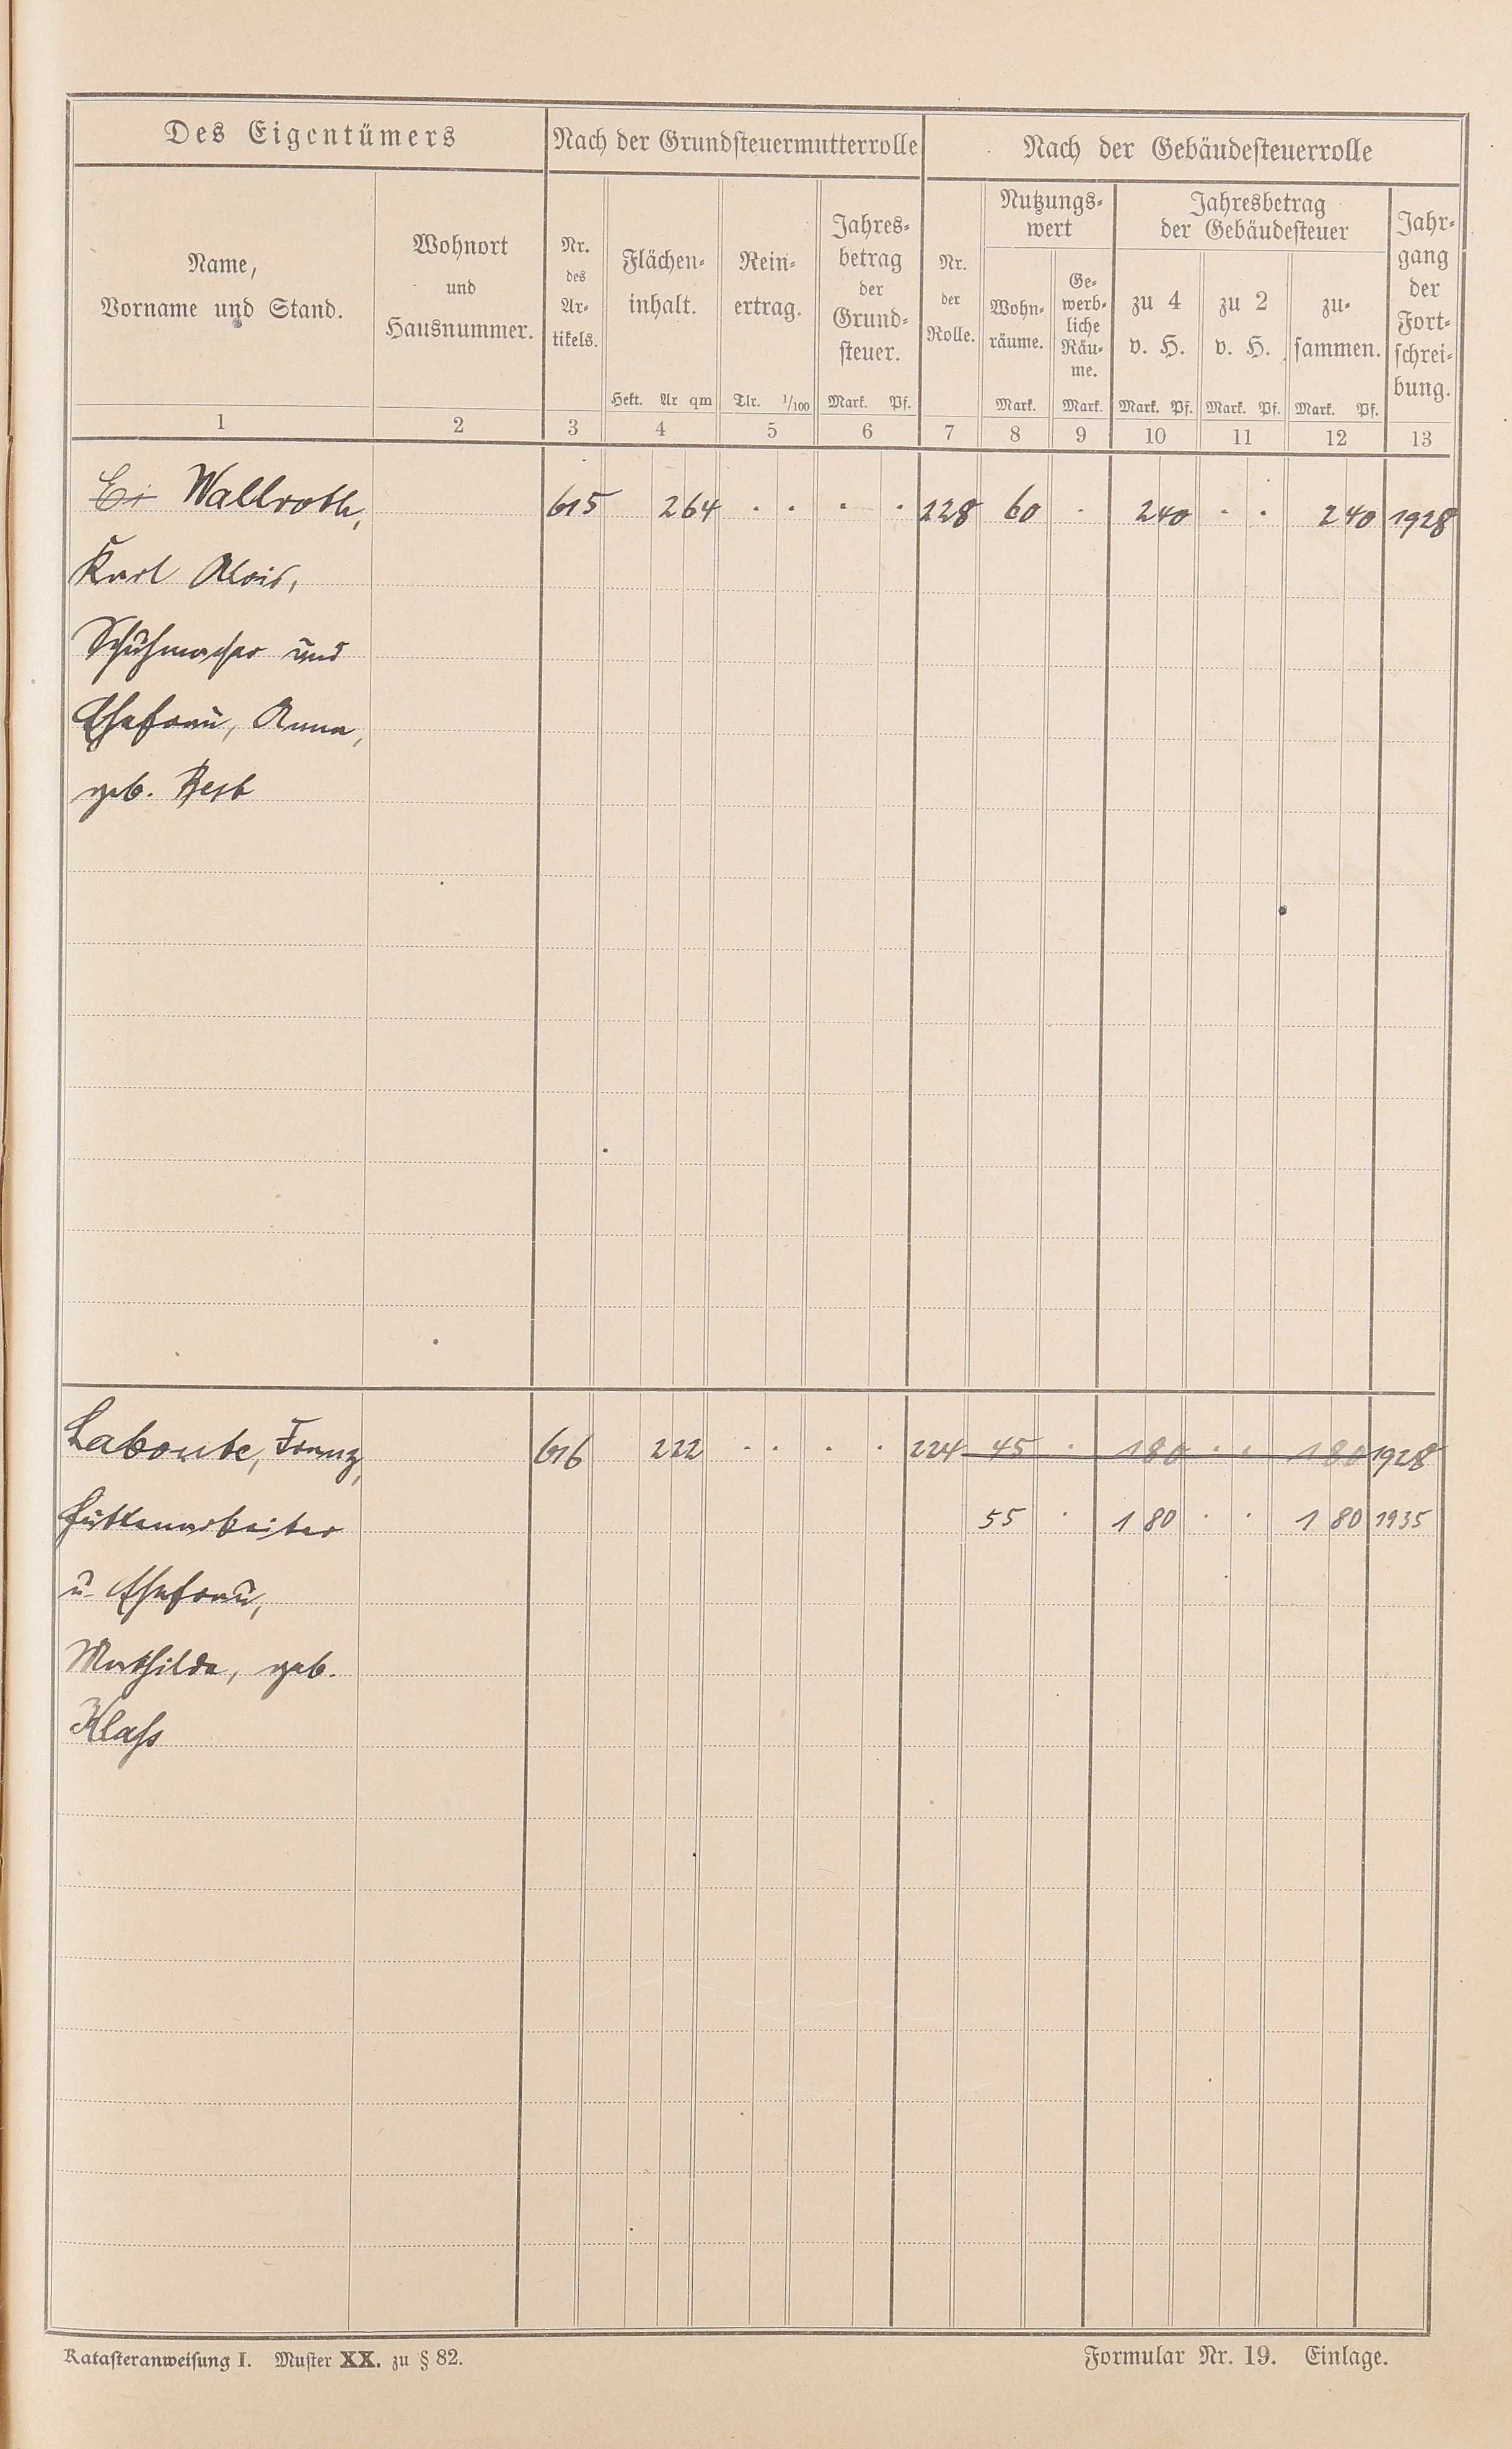 Des Eigentümers Nach der Grundsteuermutterrolle Nach der Gebäudesteuerrolle
Name,
Vorname und Stand.
Wohnort
und
Hausnummer.
Nr.
des
Ar-
tikels.
Flächen-
inhalt.
Hekt. Ar qm
Rein-
ertrag.
Tlr. 1/100
Jahres-
betrag
der
Grund-
steuer.
Mark. Pf.
Nr.
der
Rolle.
Nutzungs-
wert
Wohn-
räume.
Mark.
Ge-
werb-
liche
Räu-
me.
Mark.
Jahresbetrag
der Gebäudesteuer
zu 4
v. H.
Mark. Pf.
zu 2
v. H.
Mark. Pf.
zu-
sammen.
Mark. Pf.
Jahr-
gang
der
Fort-
schrei-
bung.
1 2 3 4 5 6 7 8 9 10 11 12 13
Wallroth, 615 2 64 . . . . 228 60 . 2 40 . . 2 40 1928
Karl Alois,
Schuhmacher und
Ehefrau, Anna,
geb. Resb
Laboube, Franz, 616 2 22 . . . . 224 45 . 1 80 . . 1 80 1928
Hüttenarbeiter 55 . 1 80 . . 1 80 1935
u. Ehefrau,
Mathilde, geb.
Klaß
Katasteranweisung I. Muster XX. zu § 82. Formular Nr. 19. Einlage.